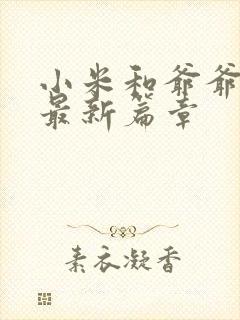 小米和爷爷
最新篇章
素衣凝香